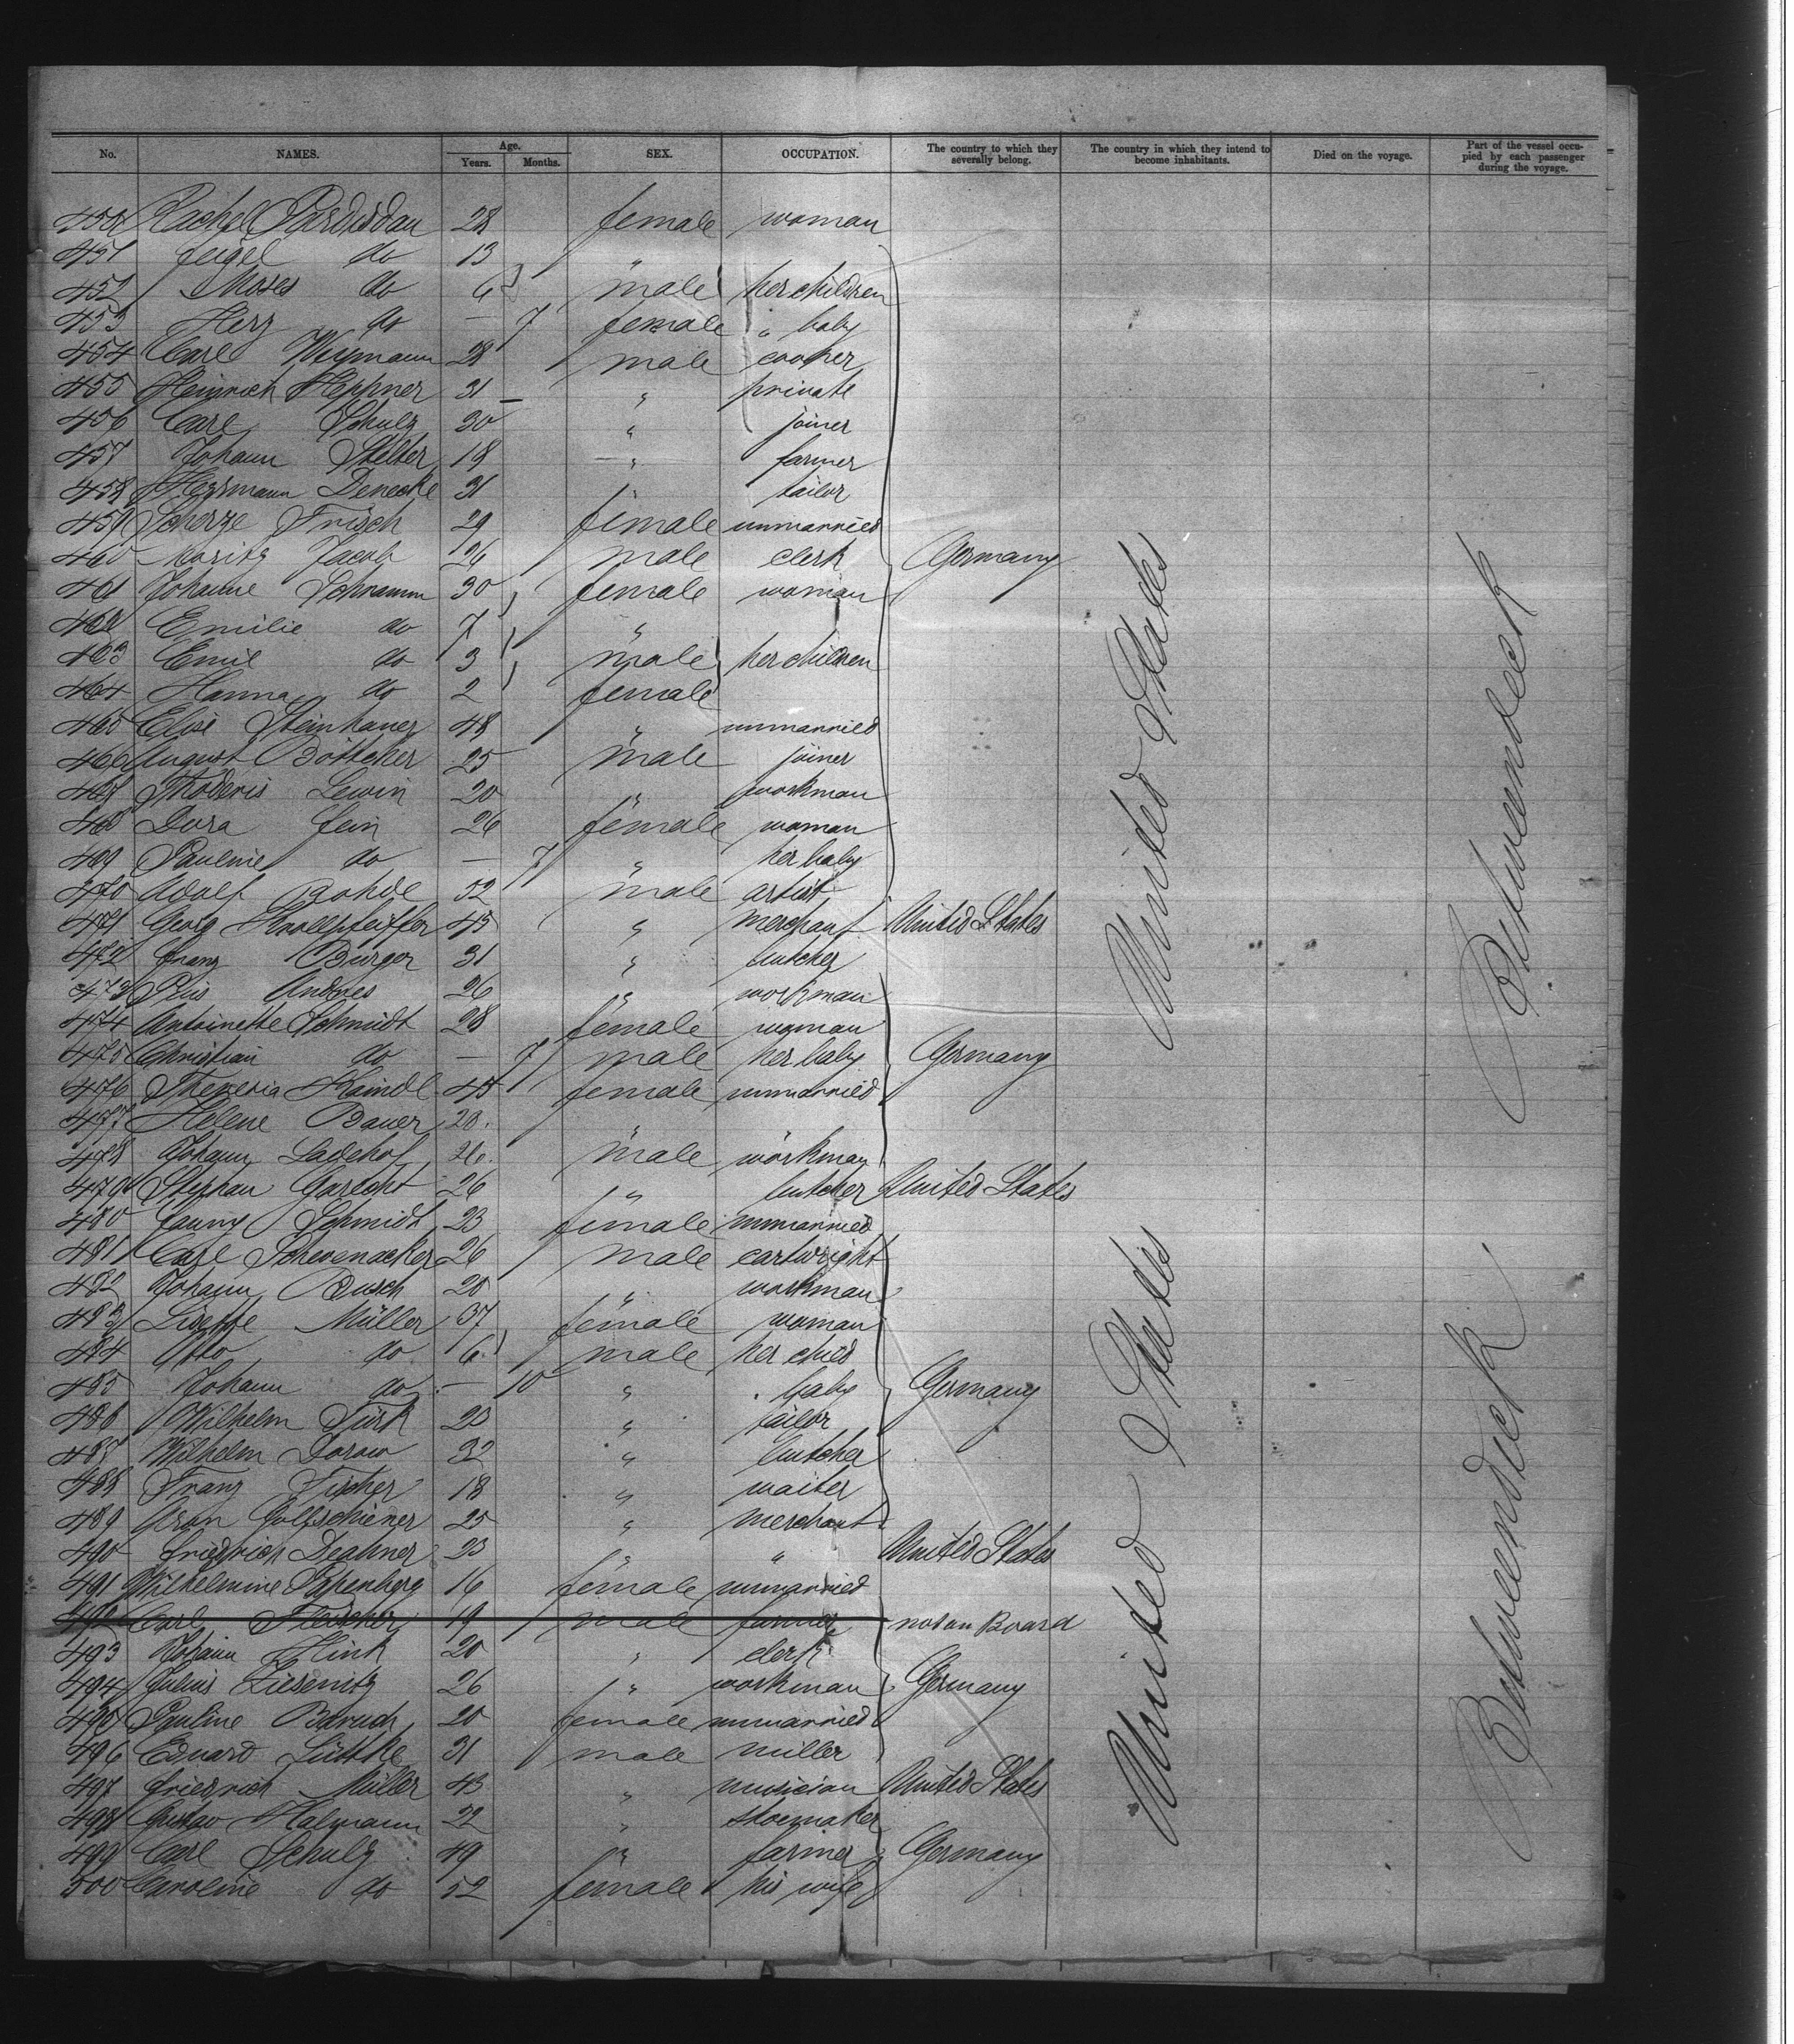 No. NAMES. Age. Years. Months. SEX. OCCUPATION. The country to which they severally belong. The country in which they intend to become inhabitants. Died on the voyage. Part of the vessel occupied by each passenger during the voyage.
450 Rachel 28 female woman
451 Feigel do 13 "
452 Moses do 6 male her children
453 Herz do — 7 female " baby
454 Carl Weymann 28 male cooper
455 Heinrich Heppner 31 " private
456 Carl Schulz 30 " joiner
457 Johann Stelter 18 " farmer
458 Hermann Denecke 31 " tailor
459 Frisch 29 female unmarried
460 Moritz Jacob 26 male clerk Germany
461 Johanne Schramm 30 female woman
462 Emilie do 7 "
463 Emil do 3 male her children
464 Hanna do 2 female
465 Elise Steinhauer 48 " unmarried
466 August Böttcher 25 male joiner
467 Lewin 20 " workman
468 Dora Fein 26 female woman
469 Pauline do — 7 " her baby
470 Adolf Rohde 52 male artist
471 Georg Knollpfeiffer 45 " merchant United States
472 Franz Burger 31 " butcher
473 Pius Andres 26 " workman
474 Antoinette Schmidt 28 female woman
475 Christian do — 7 male her baby Germany
476 Theresia Haindl 45 female unmarried
477 Helene Bauer 20. "
478 Johann Ladehof 26. male workman
479 Stephan Garecht 26 " butcher United States
480 Fanny Schmidt 23 female unmarried
481 Carl Schevenacker 26 male cartwright
482 Johann Busch 20 " workman
483 Lisette Müller 37 female woman
484 Otto do 6 male her child
485 Johann do — 10 " baby Germany
486 Wilhelm Türk 23 " tailor
487 Wilhelm Dorow 32 " butcher
488 Franz Fischer 18 " waiter
489 Aron 25 " merchant
490 Friedrich 23 " " United States
491 Wilhelmine Papenberg 16 female unmarried
492 Carl Fleischer 19 male farmer not on Board
493 Johann Hink 20 " clerk
494 Julius Liesenitz 26 " workman Germany
495 Pauline Baruch 20 female unmarried
496 Eduard Lüttke 31 male miller
497 Friedrich Müller 43 " musician United States
498 Gustav Halmann 22 " shoemaker
499 Carl Schulz 49 " farmer Germany
500 Caroline do 52 female his wife
United States
Betweendeck
United States
Betweendeck